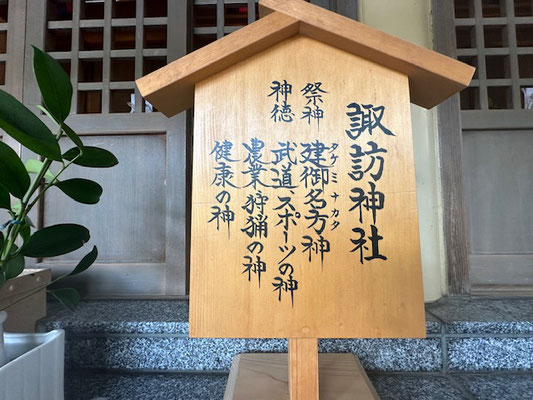 諏訪神社
祭神 建御名方神
タケミナカタ
神徳 武道、スポーツの神
農業狩猟の神
健康の神